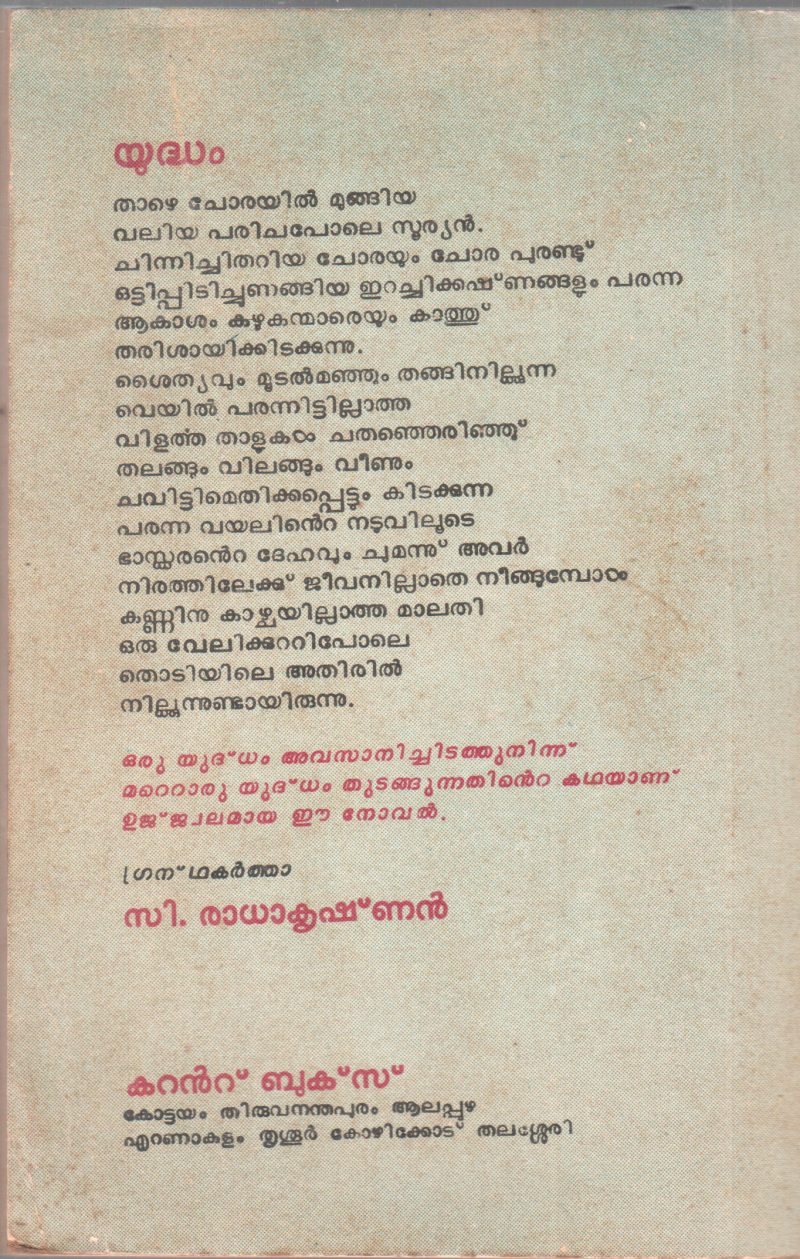 യുദ്ധം
താഴെ ചോരയിൽ മുങ്ങിയ
വലിയ പരിചപോലെ സൂര്യൻ.
ചിന്നിച്ചിതറിയ ചോരയും ചോര പുരണ്ടു്
ഒട്ടിപ്പിടിച്ചുണങ്ങിയ ഇറച്ചിക്കഷ്ണങ്ങളും പരന്ന
ആകാശം കഴുകന്മാരെയും കാത്തു്
തരിശായിക്കിടക്കുന്നു.
ശൈത്യവും മൂടൽമഞ്ഞും തങ്ങിനില്ക്കുന്ന
വെയിൽ പരന്നിട്ടില്ലാത്ത
വിളൎത്ത താളുകൾ ചതഞ്ഞെരിഞ്ഞു്
തലങ്ങും വിലങ്ങും വീണും
ചവിട്ടിമെതിക്കപ്പെട്ടും കിടക്കുന്ന
പരന്ന വയലിൻെറ നടുവിലൂടെ
ഭാസ്കരൻെറ ദേഹവും ചുമന്നു് അവർ
നിരത്തിലേക്കു് ജീവനില്ലാതെ നീങ്ങുമ്പോൾ
കണ്ണിനു കാഴ്ചയില്ലാത്ത മാലതി
ഒരു വേലിക്കുററിപോലെ
തൊടിയിലെ അതിരിൽ
നില്ക്കുന്നുണ്ടായിരുന്നു.
ഒരു യുദ്ധം അവസാനിച്ചിടത്തുനിന്ന്
മറെറാരു യുദ്ധം തുടങ്ങുന്നതിൻെറ കഥയാണ്
ഉജ്ജ്വലമായ ഈ നോവൽ.
ഗ്രന്ഥകർത്താ
സി. രാധാകൃഷ്ണൻ
കറൻറ് ബുക്സ്
കോട്ടയം തിരുവനന്തപുരം ആലപ്പുഴ
എറണാകുളം തൃശൂർ കോഴിക്കോട് തലശ്ശേരി